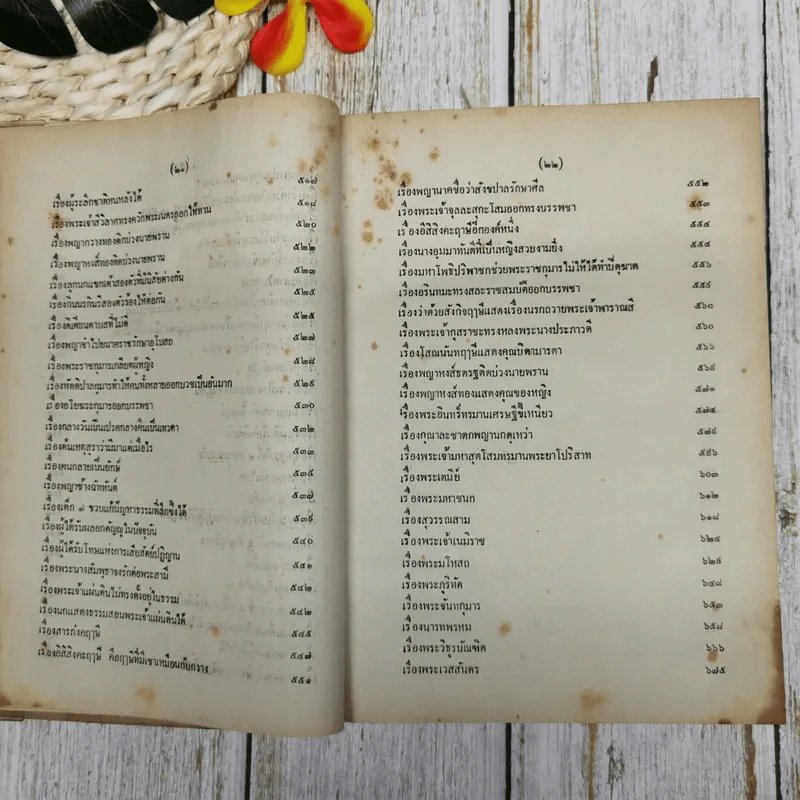 (๒๑)
เรื่องผู้ระลึกชาติหนหลังได้ ๕๑๗
เรื่องพระเจ้าสิวิลาศทรงควักพระเนตรออกให้ทาน ๕๑๘
เรื่องพญากวางทองติดบ่วงนายพราน ๕๒๐
เรื่องพญาหงส์ทองติดบ่วงนายพราน ๕๒๒
เรื่องลูกนกแขกเต้าสองตัวที่มีนิสัยต่างกัน ๕๒๓
เรื่องกินนรกินรีสองตัวร้องไห้ต่อกัน ๕๒๕
เรื่องติเตียนดาบสที่ไม่ดี ๕๒๕
เรื่องพญาจำไปยนาคราชรักษาอุโบสถ ๕๒๗
เรื่องพระราชกุมารเกลียดผู้หญิง ๕๒๘
เรื่องหัตถิปาลกุมารทำให้คนทั้งหลายออกบวชเป็นอันมาก ๕๒๙
เรื่องอโยฆระกุมารออกบรรพชา ๕๓๐
เรื่องกลางวันเป็นเปรตกลางคืนเป็นเทวดา ๕๓๒
เรื่องต้นเหตุสุราว่ามีมาแต่เมื่อไร ๕๓๓
เรื่องคนกลายเป็นยักษ์ ๕๓๕
เรื่องพญาช้างฉัททันต์ ๕๓๗
เรื่องเด็ก ๗ ขวบแก้ปัญหาธรรมที่ลึกซึ้งได้ ๕๓๙
เรื่องผู้ได้รับผลอกตัญญูในปัจจุบัน ๕๔๐
เรื่องผู้ได้รับโทษแห่งการเสียสัตย์ปฏิญาณ ๕๔๑
เรื่องพระนางสัมพุชาจงรักต่อพระสามี ๕๔๒
เรื่องพระเจ้าแผ่นดินไม่ทรงตั้งอยู่ในธรรม ๕๔๒
เรื่องนกแสดงธรรมสอนพระเจ้าแผ่นดินได้ ๕๔๕
เรื่องสารภังคฤาษี ๕๔๗
เรื่องอิสิสิงคะฤาษี คือฤาษีที่มีเขาเหมือนกับกวาง ๕๕๑
(๒๒)
เรื่องพญานาคชื่อว่าสังขปาลรักษาศีล ๕๕๒
เรื่องพระเจ้าจุลละสุตะโสมออกทรงบรรพชา ๕๕๓
เรื่องอิสิสิงคะฤาษีอีกองค์หนึ่ง ๕๕๔
เรื่องนางอุมมาทันตีที่เป็นหญิงสวยงามยิ่ง ๕๕๔
เรื่องมหาโพธิปริพาชกช่วยพระราชกุมารไม่ให้ได้ทำปิตุฆาต ๕๕๖
เรื่องอรินทมะทรงสละราชสมบัติออกบรรพชา ๕๕๙
เรื่องว่าด้วยสังกิจฤาษีแสดงเรื่องนรกถวายพระเจ้าพาราณสี ๕๖๐
เรื่องพระเจ้ากุสราชะทรงหลงพระนางประภาวดี ๕๖๐
เรื่องโสณนันทฤาษีแสดงคุณบิดามารดา ๕๖๖
เรื่องพญาหงส์ธตรฐติดบ่วงนายพราน ๕๖๘
เรื่องพญาหงส์ทองแสดงคุณของหญิง ๕๗๑
เรื่องพระอินทร์ทรมานเศรษฐีขี้เหนียว ๕๗๔
เรื่องกุณาละชาดกพญานกดุเหว่า ๕๗๙
เรื่องพระเจ้ามหาสุตโสมทรมานพระยาโปริสาท ๕๙๖
เรื่องพระเตมีย์ ๖๐๓
เรื่องพระมหาชนก ๖๑๒
เรื่องสุวรรณสาม ๖๑๘
เรื่องพระเจ้าเนมิราช ๖๒๔
เรื่องพระมโหสถ ๖๒๙
เรื่องพระภูริทัต ๖๔๘
เรื่องพระจันทกุมาร ๖๕๓
เรื่องนารทพรหม ๖๕๘
เรื่องพระวิธูรบัณฑิต ๖๖๖
เรื่องพระเวสสันดร ๖๗๕